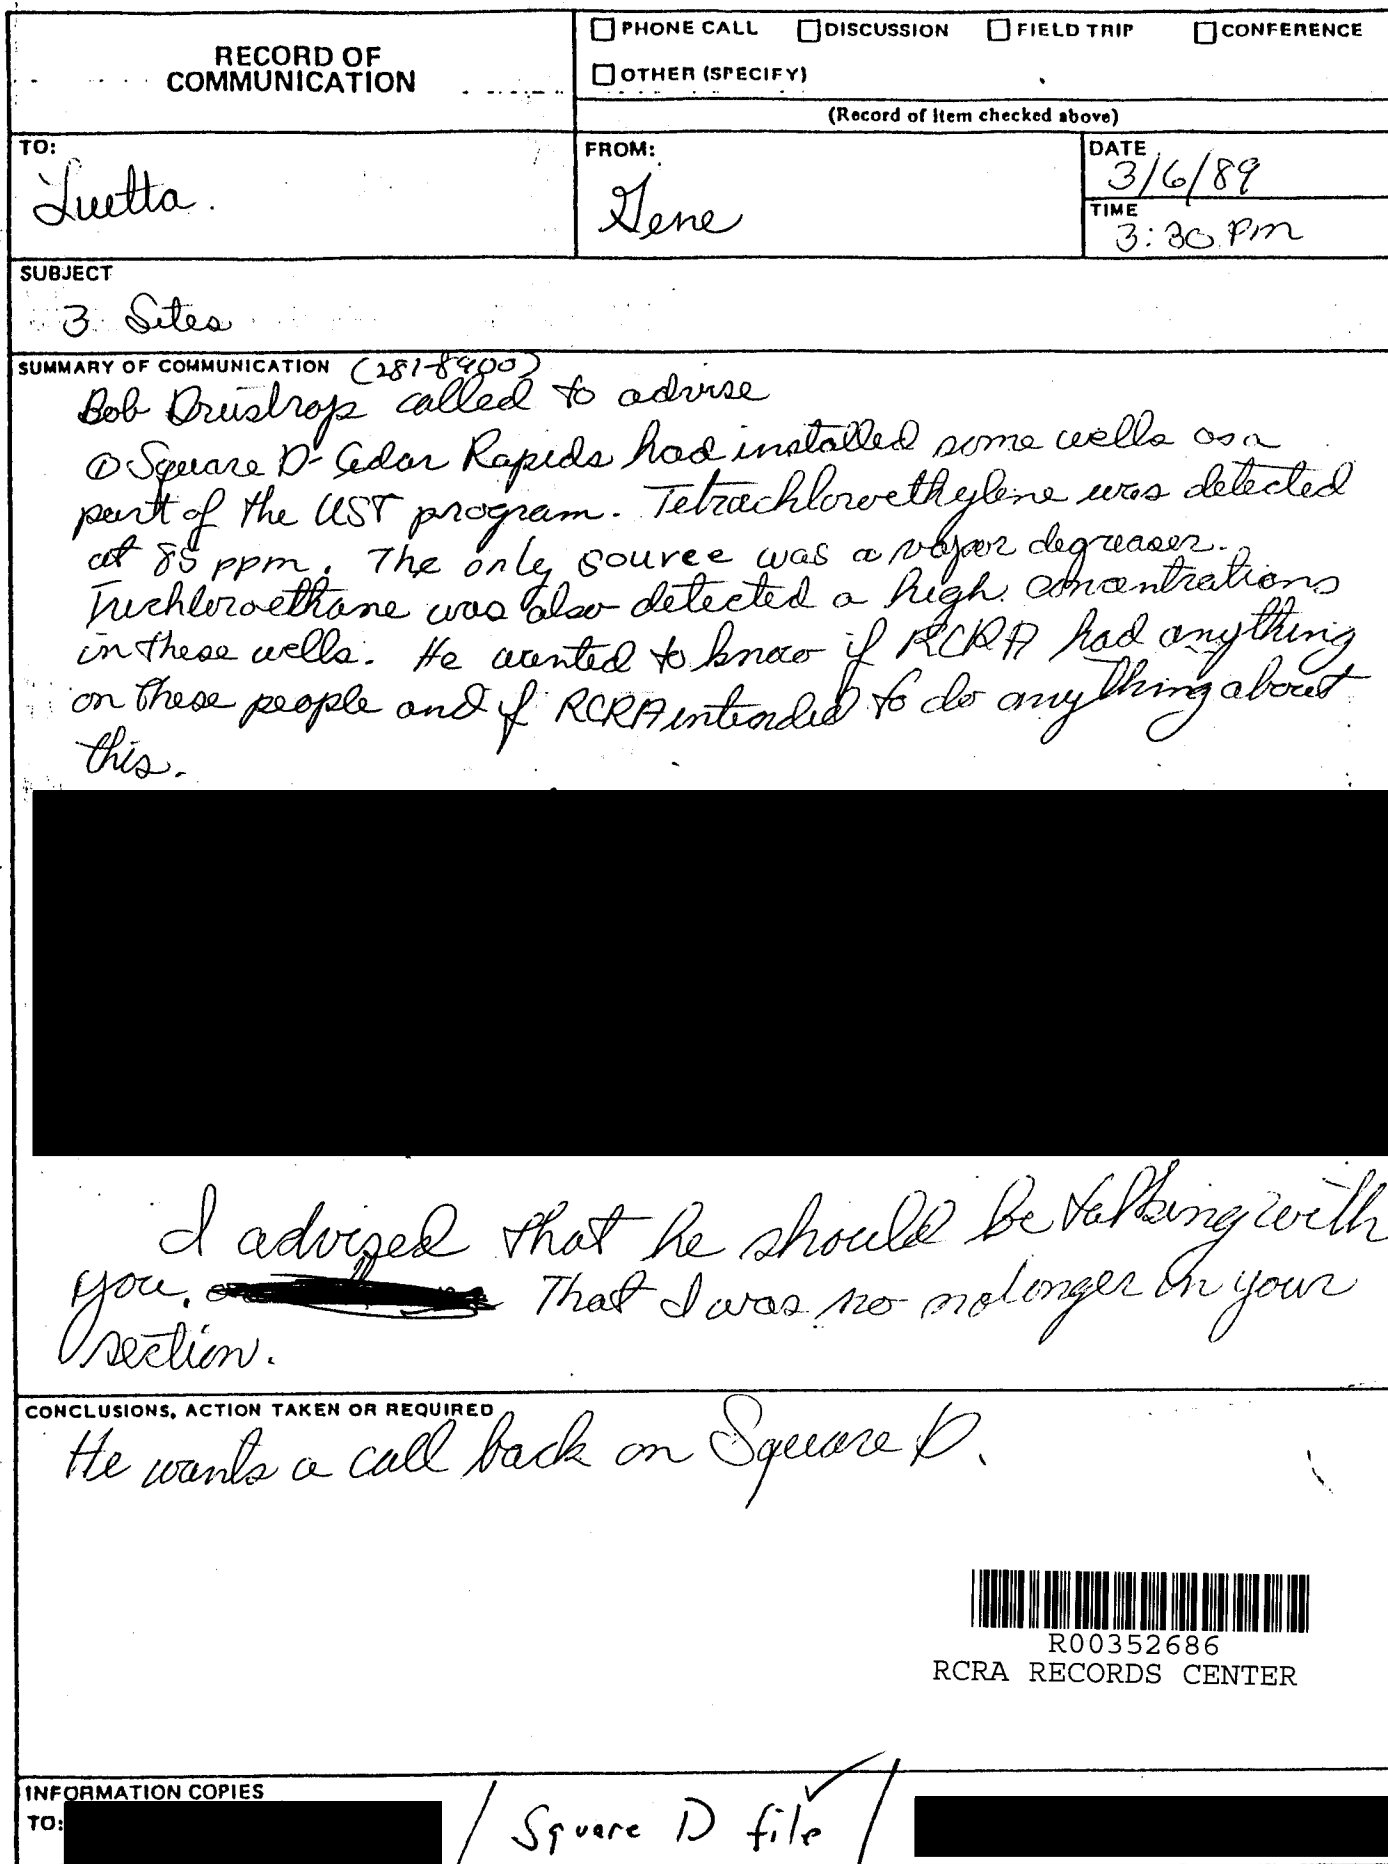 RECORD OF
COMMUNICATION
PHONE CALL DISCUSSION FIELD TRIP CONFERENCE
OTHER (SPECIFY)
(Record of item checked above)
TO:
Luetta.
FROM:
Gene
DATE
3/6/89
TIME
3:30 Pm
SUBJECT
3 Sites
SUMMARY OF COMMUNICATION (281-8900)
Bob Drustrop called to advise
① Square D - Cedar Rapids had installed some wells as a
part of the UST program. Tetrachloroethylene was detected
at 85 ppm. The only source was a vapor degreaser.
Trichloroethane was also detected a high concentrations
in these wells. He wanted to know if RCRA had anything
on these people and if RCRA intended to do anything about
this.
I advised that he should be talking with
you. That I was no nolonger in your
section.
CONCLUSIONS, ACTION TAKEN OR REQUIRED
He wants a call back on Square D.
R00352686
RCRA RECORDS CENTER
INFORMATION COPIES
TO: / Square D file /